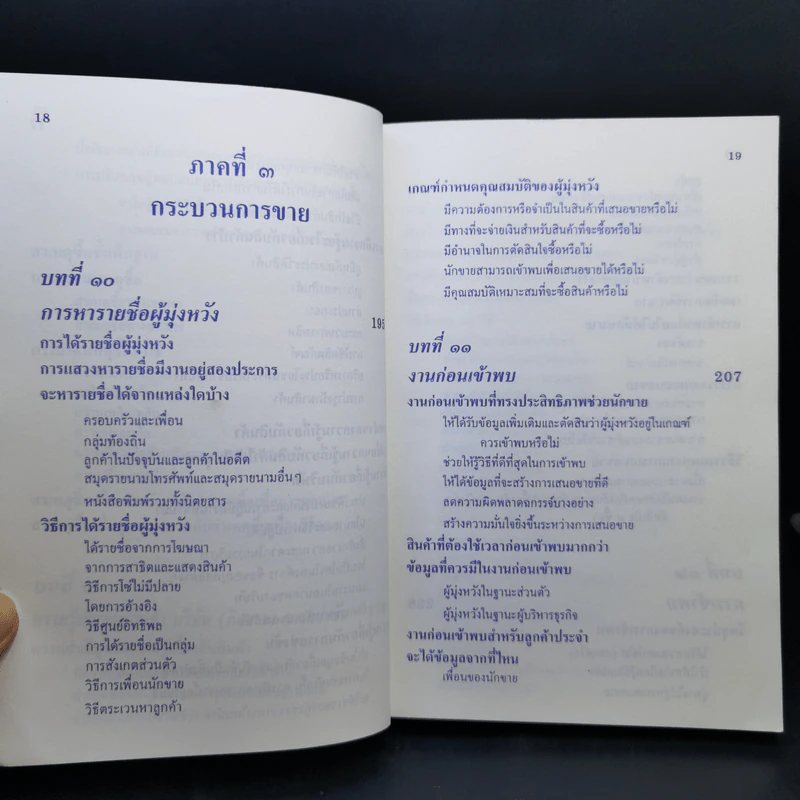 18
ภาคที่ ๓
กระบวนการขาย
บทที่ ๑๐
การหารายชื่อผู้มุ่งหวัง 195
การได้รายชื่อผู้มุ่งหวัง
การแสวงหารายชื่อมีงานอยู่สองประการ
จะหารายชื่อได้จากแหล่งใดบ้าง
ครอบครัวและเพื่อน
กลุ่มท้องถิ่น
ลูกค้าในปัจจุบันและลูกค้าในอดีต
สมุดรายนามโทรศัพท์และสมุดรายนามอื่นๆ
หนังสือพิมพ์รวมทั้งนิตยสาร
วิธีการได้รายชื่อผู้มุ่งหวัง
ได้รายชื่อจากการโฆษณา
จากการสาธิตและแสดงสินค้า
วิธีการโซ่ไม่มีปลาย
โดยการอ้างอิง
วิธีศูนย์อิทธิพล
การได้รายชื่อเป็นกลุ่ม
การสังเกตส่วนตัว
วิธีการเพื่อนนักขาย
วิธีตระเวนหาลูกค้า
19
เกณฑ์กำหนดคุณสมบัติของผู้มุ่งหวัง
มีความต้องการหรือจำเป็นในสินค้าที่เสนอขายหรือไม่
มีทางที่จะจ่ายเงินสำหรับสินค้าที่จะซื้อหรือไม่
มีอำนาจในการตัดสินใจซื้อหรือไม่
นักขายสามารถเข้าพบเพื่อเสนอขายได้หรือไม่
มีคุณสมบัติเหมาะสมที่จะซื้อสินค้าหรือไม่
บทที่ ๑๑
งานก่อนเข้าพบ 207
งานก่อนเข้าพบที่ทรงประสิทธิภาพช่วยนักขาย
ให้ได้รับข้อมูลเพิ่มเติมและตัดสินว่าผู้มุ่งหวังอยู่ในเกณฑ์
ควรเข้าพบหรือไม่
ช่วยให้รู้วิธีที่ดีที่สุดในการเข้าพบ
ให้ได้ข้อมูลที่จะสร้างการเสนอขายที่ดี
ลดความผิดพลาดฉกรรจ์บางอย่าง
สร้างความมั่นใจยิ่งขึ้นระหว่างการเสนอขาย
สินค้าที่ต้องใช้เวลาก่อนเข้าพบมากกว่า
ข้อมูลที่ควรมีในงานก่อนเข้าพบ
ผู้มุ่งหวังในฐานะส่วนตัว
ผู้มุ่งหวังในฐานะผู้บริหารธุรกิจ
งานก่อนเข้าพบสำหรับลูกค้าประจำ
จะได้ข้อมูลจากที่ไหน
เพื่อนของนักขาย